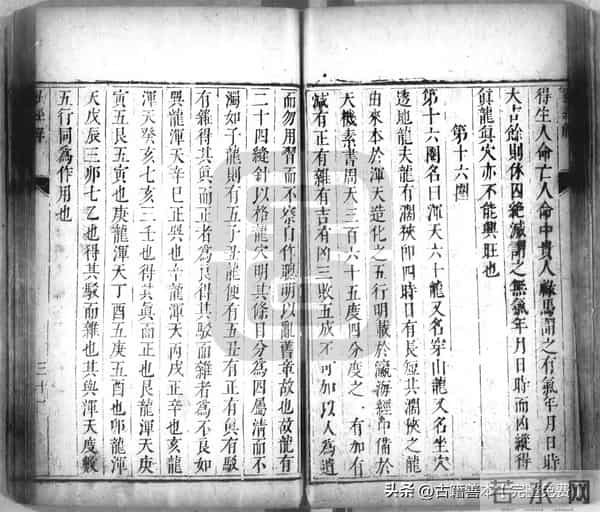 得生人命亡人命中貴人祿馬謂之有氣年月日時
大吉餘則休囚絕滅謂之無氣年月日時而凶縱得
眞龍眞穴亦不能興旺也
第十六圈
第十六圈名曰渾天六十龍又名穿山龍又名坐穴
透地龍夫龍有濶狹卽四時日有長短其濶狹之龍
由來本於渾天造化之五行明載於瀛海經中備於
天機素書周天三百六十五度四分度之一有加有
減有正有雜有吉有凶三敗五成不可加以人為遺
而勿用習而不察自作聰明以亂舊章故也故龍有
二十四縫針以格龍穴明其條目分為四屬清而不
濁如子龍則有五子丑龍便有五丑有正有與有駁
有雜得其與而正者為良得其駁而雜者為不良如
巽龍渾天辛巳正與也辛龍渾天丙戌正辛也亥龍
渾天癸亥七亥三壬也得其眞而正也艮龍渾天庚
寅五艮五寅也庚龍渾天丁酉五庚五酉也卯龍渾
天戊辰三卯七乙也得其駁而雜也其與渾天度數
五行同為作用也
三十
头条 @古籍善本（完整免费）